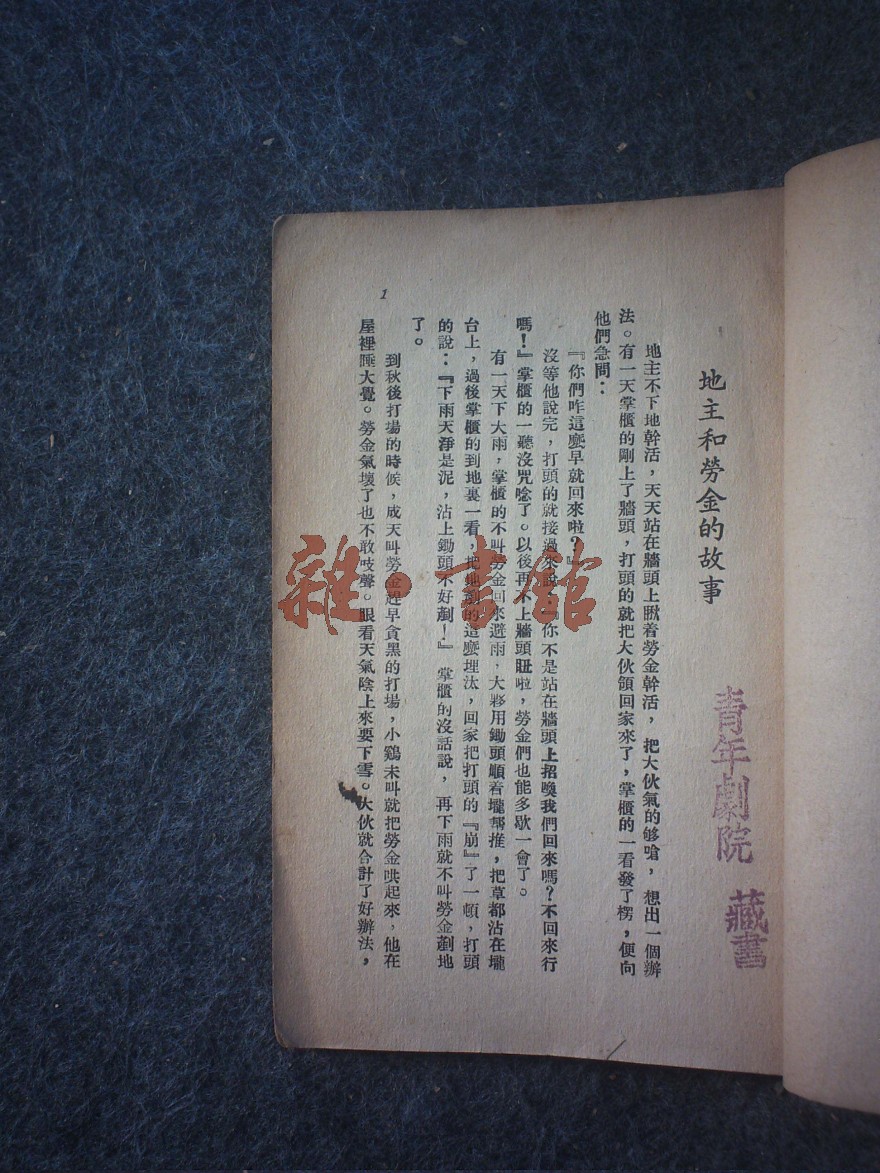 地主和勞金的故事
地主不下地幹活，天天站在牆頭上瞅着勞金幹活，把大伙氣的够嗆，想出一個辦
法。有一天掌櫃的剛上了牆頭，打頭的就把大伙領回家來了，掌櫃的一看發了楞，便向
他們急問：
『你們咋這麼早就回來啦？』
沒等他說完，打頭的就接過來說：『你不是站在牆頭上招喚我們回來嗎？不回來行
嗎！』掌櫃的一聽沒咒唸了。以後再不上牆頭瞅啦，勞金們也能多歇一會了。
有一天下大雨，掌櫃的不叫勞金回來避雨，大夥用鋤頭順着壠幫推，把草都沾在壠
台上，過後掌櫃的到地裏一看，把地剷的這麼埋汰，回家把打頭的『崩』了一頓，打頭
的說：『下雨天淨是泥，沾上鋤頭不好剷！』掌櫃的沒話說，再下雨就不叫勞金剷地
了。
到秋後打場的時候，成天叫勞金趕早貪黑的打場，小鷄未叫就把勞金哄起來，他在
屋裡睡大覺。勞金氣壞了也不敢吱聲。眼看天氣陰上來要下雪。大伙就合計了好辦法，
1
青年劇院 藏書
雜·書館